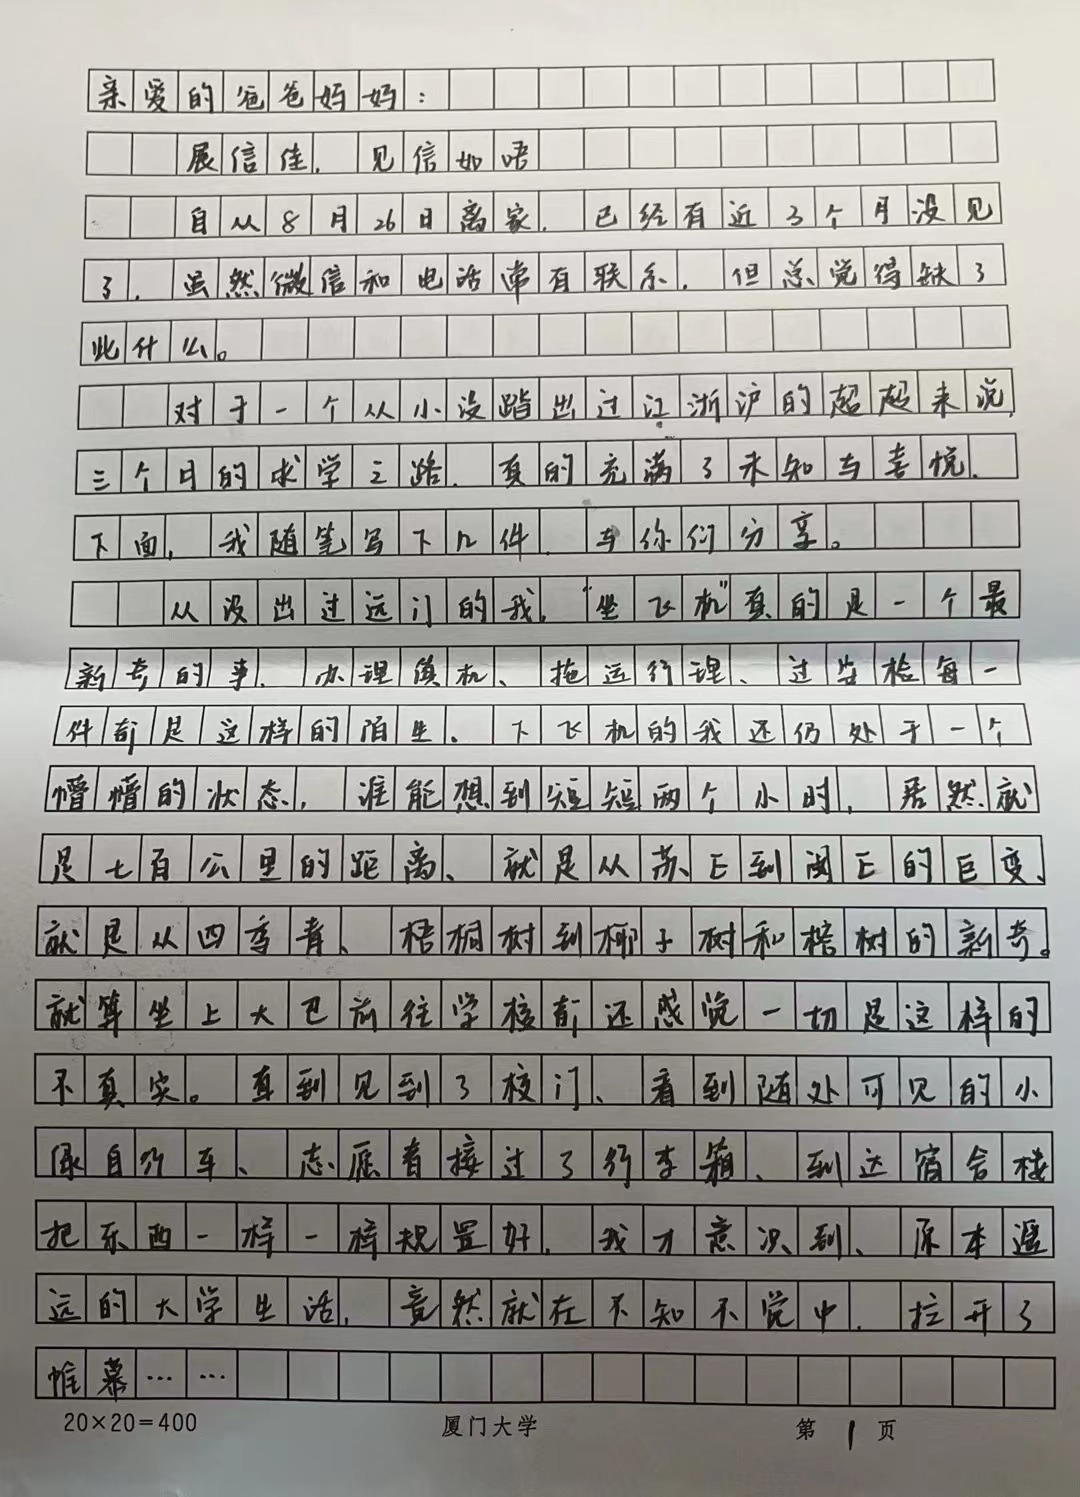 亲爱的爸爸妈妈：
展信佳，见信如唔
自从8月26日离家，已经有近3个月没见
了，虽然微信和电话常有联系，但总觉得缺了
些什么。
对于一个从小没踏出过江浙沪的超超来说，
三个月的求学之路，真的充满了未知与喜悦，
下面，我随笔写下几件，与你们分享。
从没出过远门的我，“坐飞机”真的是一个最
新奇的事，办理值机、拖运行理、过安检每一
件都是这样的陌生，下飞机的我还仍处于一个
懵懵的状态，谁能想到短短两个小时，居然就
是七百公里的距离、就是从苏E到闽E的巨变、
就是从四季青、梧桐树到椰子树和榕树的新奇。
就算坐上大巴前往学校都还感觉一切是这样的
不真实。直到见到了校门、看到随处可见的小
绿自行车、志愿者接过了行李箱、到达宿舍楼
把东西一样一样规置好，我才意识到、原本遥
远的大学生活，竟然就在不知不觉中，拉开了
帷幕……
20×20=400 厦门大学 第1页